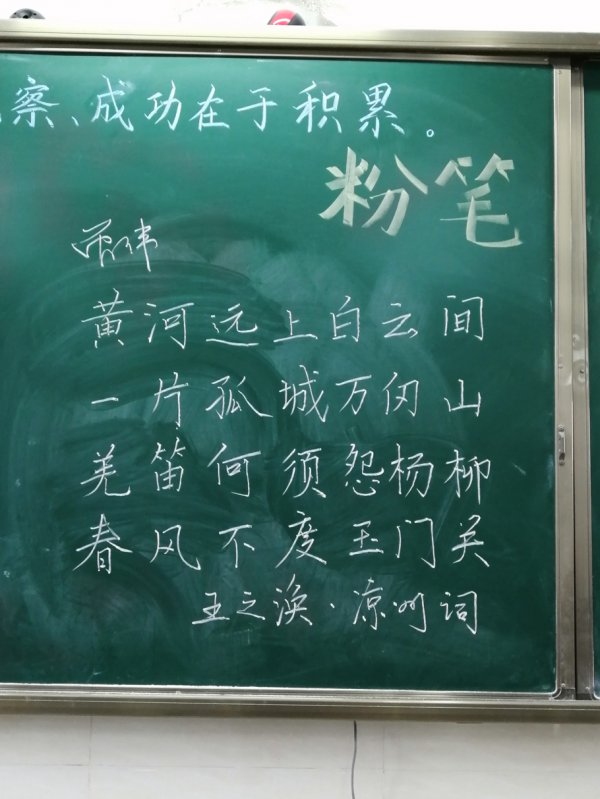 察、成功在于积累。
粉笔
黄河远上白云间
一片孤城万仞山
羌笛何须怨杨柳
春风不度玉门关
王之涣·凉州词